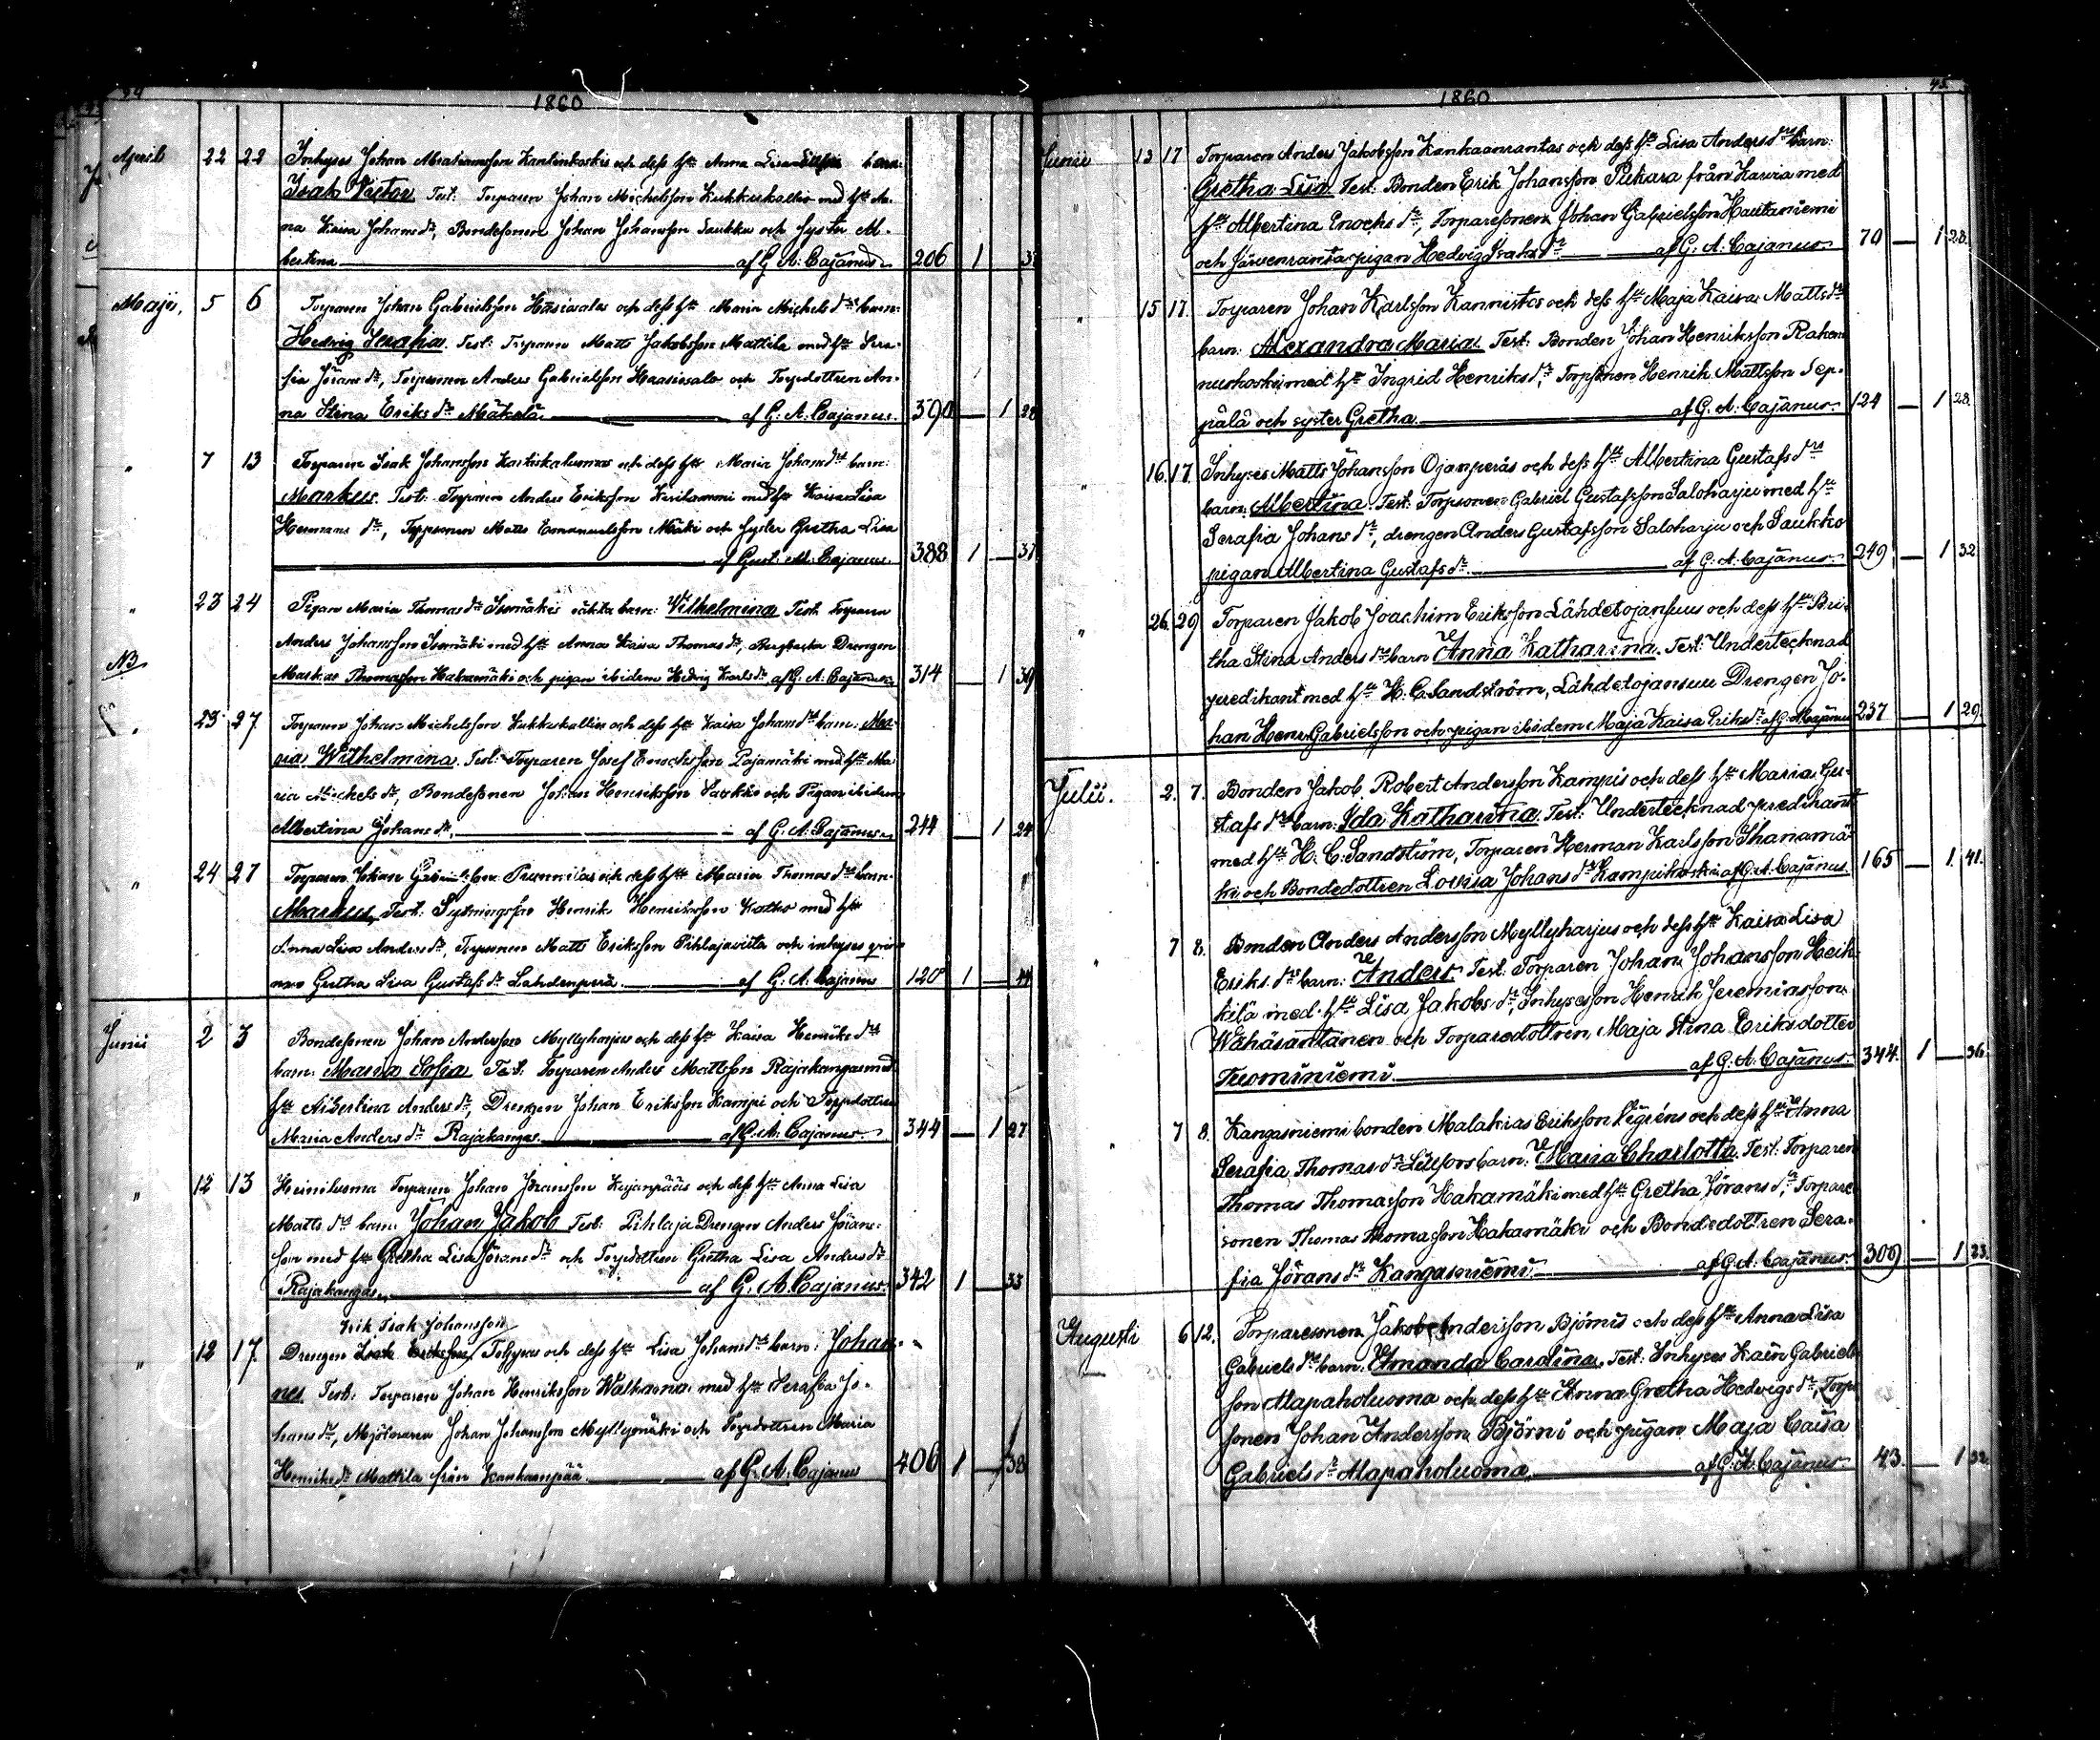 1860
Aprill 22 22 Inhyses Johan Abrahamsson Kantinkoskis och dess hu Anna Lisa barn:
Isak Victor. Test: Torparen Johan Michelsson Kukkukallio med hu An-
na Kaisa Johans dr, Bondesonen Johan Johansson Saukko och Syster Al-
bertina af G. A. Cajanus 206 1
Maji, 5 6 Torparen Johan Gabrielsson Haasiosalos och dess hu Maria Michels drs barn:
Hedvig Serafia. Test: Torparen Matts Jakobsson Mattila med hu Sera-
fia Jörans dr, Torpsonen Anders Gabrielsson Haasiosalo och Torpdottren An-
na Stina Eriks dr Mäkelä af G. A. Cajanus. 390 — 1 28
" 7 13 Torparen Isak Johansson och dess hu Maria Johans drs barn:
Markus. Test: Torparen Anders Eriksson med hu Kaisa Lisa
Hermans dr, Torpsonen Matts Emanuelsson Mäki och Syster Gretha Lisa
af Gust. Ad. Cajanus. 388 1 — 37
" 23 24 Pigan Maria Thomas dr Isomäkis oäkta barn: Vilhelmina. Test. Torparen
Anders Johansson Isomäki med hu Anna Kaisa Thomas dr, Drengen
NB Markus Thomasson Hakamäki och pigan ibidem Hedvig Karls dr af G. A. Cajanus 314 — 1 39
" 23 27 Torparen Johan Michelsson Kukkukallios och dess hu Kaisa Johans drs barn: Ma-
ria Wilhelmina. Test: Torparen Josef Enochsson Pajamäki med hu Ma-
ria Michels dr, Bondesonen Johan Henriksson Saukko och Pigan ibidem
Albertina Johans dr. af G. A. Cajanus 244 — 1 24
" 24 27 Torparen Johan Prunnilas och dess hu Maria Thomas drs barn:
Markus, Test: Henrik Henriksson Katko med hu
Anna Lisa Anders dr, Torpsonen Matts Eriksson Pihlajaviita och inhyses qvin-
nan Gretha Lisa Gustafs dr Lahdenperä af G. A. Cajanus 120 1 — 44
Junii 2 3 Bondesonen Johan Andersson Myllyharjus och dess hu Kaisa Henriks drs
barn: Maria Sofia Test: Torparen Anders Mattsson Rajakangas med
hu Albertina Anders dr, Drengen Johan Eriksson Kampi och Torpdottren
Maria Anders dr Rajakangas af G. A. Cajanus 344 — 1 27
" 12 13 Heiniluoma Torparen Johan Jöransson Kujanpääs och dess hu Anna Lisa
Matts drs barn: Johan Jakob Test: Pihlaja Drengen Anders Jörans-
son med hu Gretha Lisa Jörans dr och Torpdottren Gretha Lisa Anders dr
Rajakangas. af G. A. Cajanus. 342 1 — 33
Erik Isak Johansson
" 12 17. Drengen och dess hu Lisa Johans drs barn: Johan-
nes. Test: Torparen Johan Henriksson Walkama med hu Serafia Jo-
hans dr, Mjölnaren Johan Johansson Myllymäki och Torpdottren Maria
Henriks dr Mattila från Kankaanpää. af G. A. Cajanus 406 1 38
1860
Junii 13 17 Torparen Anders Jakobsson Kankaanrantas och dess hu Lisa Anders drs barn:
Gretha Lisa. Test: Bonden Erik Johansson Pukara från Karvia med
hu Albertina Enochs dr, Torparesonen Johan Gabrielsson Hautaniemi
och Järvenrantapigan Hedvig Isaks dr af G. A. Cajanus 70 — 1 28.
" 15 17. Torparen Johan Karlsson Kannistos och dess hu Maja Kaisa Matts drs
barn: Alexandra Maria. Test: Bonden Johan Henriksson Raken-
nuskoski med hu Ingrid Henriks dr, Torpsonen Henrik Mattsson Sep-
pälä och syster Gretha. af G. A. Cajanus 124 — 1 28.
" 16 17. Inhyses Matts Johansson Ojanperäs och dess hu Albertina Gustafs drs
barn: Albertina. Test: Torpsonen Gabriel Gustafsson Saloharju med hu
Serafia Johans dr, drengen Anders Gustafsson Saloharju och Saukko
pigan Albertina Gustafs dr. af G. A. Cajanus 249 — 1 32
" 26. 29 Torparen Jakob Joachim Eriksson Lähdetojansuus och dess hu Bri-
tha Stina Anders drs barn Anna Katharina. Test: Undertecknad
predikant med hu H. C. Sandström, Lähdetojansuu Drengen Jo-
han Henr. Gabrielsson och pigan ibidem Maja Kaisa Eriks dr af G. A. Cajanus 237 — 1 29.
Julii. 2. 7. Bonden Jakob Robert Andersson Kampis och dess hu Maria Gu-
stafs drs barn: Ida Katharina. Test: Undertecknad predikant
med hu H. C. Sandström, Torparen Herman Karlsson Ihanamä-
ki och Bondedottren Lovisa Johans dr Kampinkoski af G. A. Cajanus. 165 — 1. 41.
" 7 8. Bonden Anders Andersson Myllyharjus och dess hu Kaisa Lisa
Eriks drs barn: Anders. Test: Torparen Johan Johansson Heik-
kilä med hu Lisa Jakobs dr, Inhysesson Henrik Jeremiasson
Wähäsantanen och Torparedottren Maja Stina Eriksdotter
Tuominiemi. af G. A. Cajanus 344. 1 — 36.
" 7 8. Kangasniemi bonden Malakias Eriksson Vigréns och dess hu Anna
Serafia Thomas dr Lillfors barn: Maria Charlotta. Test: Torparen
Thomas Thomasson Hakamäki med hu Gretha Jörans dr, Torpare-
sonen Thomas Thomasson Hakamäki och Bondedottren Sera-
fia Jörans dr Kangasniemi. af G. A. Cajanus. 309 — 1 23.
Augusti 6 12. Torparesonen Jakob Andersson Björnis och dess hu Anna Lisa
Gabriels drs barn: Amanda Carolina. Test: Inhyses Kain Gabriels-
son Alapaholuoma och dess hu Anna Gretha Hedvigs dr, Torp-
sonen Johan Andersson Björni och pigan Maja Caisa
Gabriels dr Alapaholuoma. af G. A. Cajanus. 43. — 1 32.